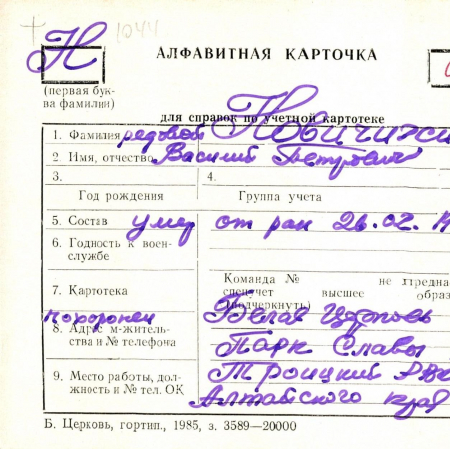 1044
Н АЛФАВИТНАЯ КАРТОЧКА
(первая бук-
ва фамилии)
для справок по учетной картотеке
1. Фамилия рядовой Новичихи
2 Имя, отчество Василий Петрович
3. 4.
Год рождения Группа учета
5. Состав умер от ран 26.02.19
6. Годность к воен-
службе
Команда № не предна
7. Картотека спецучет высшее образ
похоронен (подчеркнуть) Белая Церковь
8. Адрес м-житель-
ства и № телефона Парк Славы
9. Место работы, дол- Троицкий РВК
жность и № тел. ОК Алтайского края
Б. Церковь, гортип., 1985, з. 3589—20000